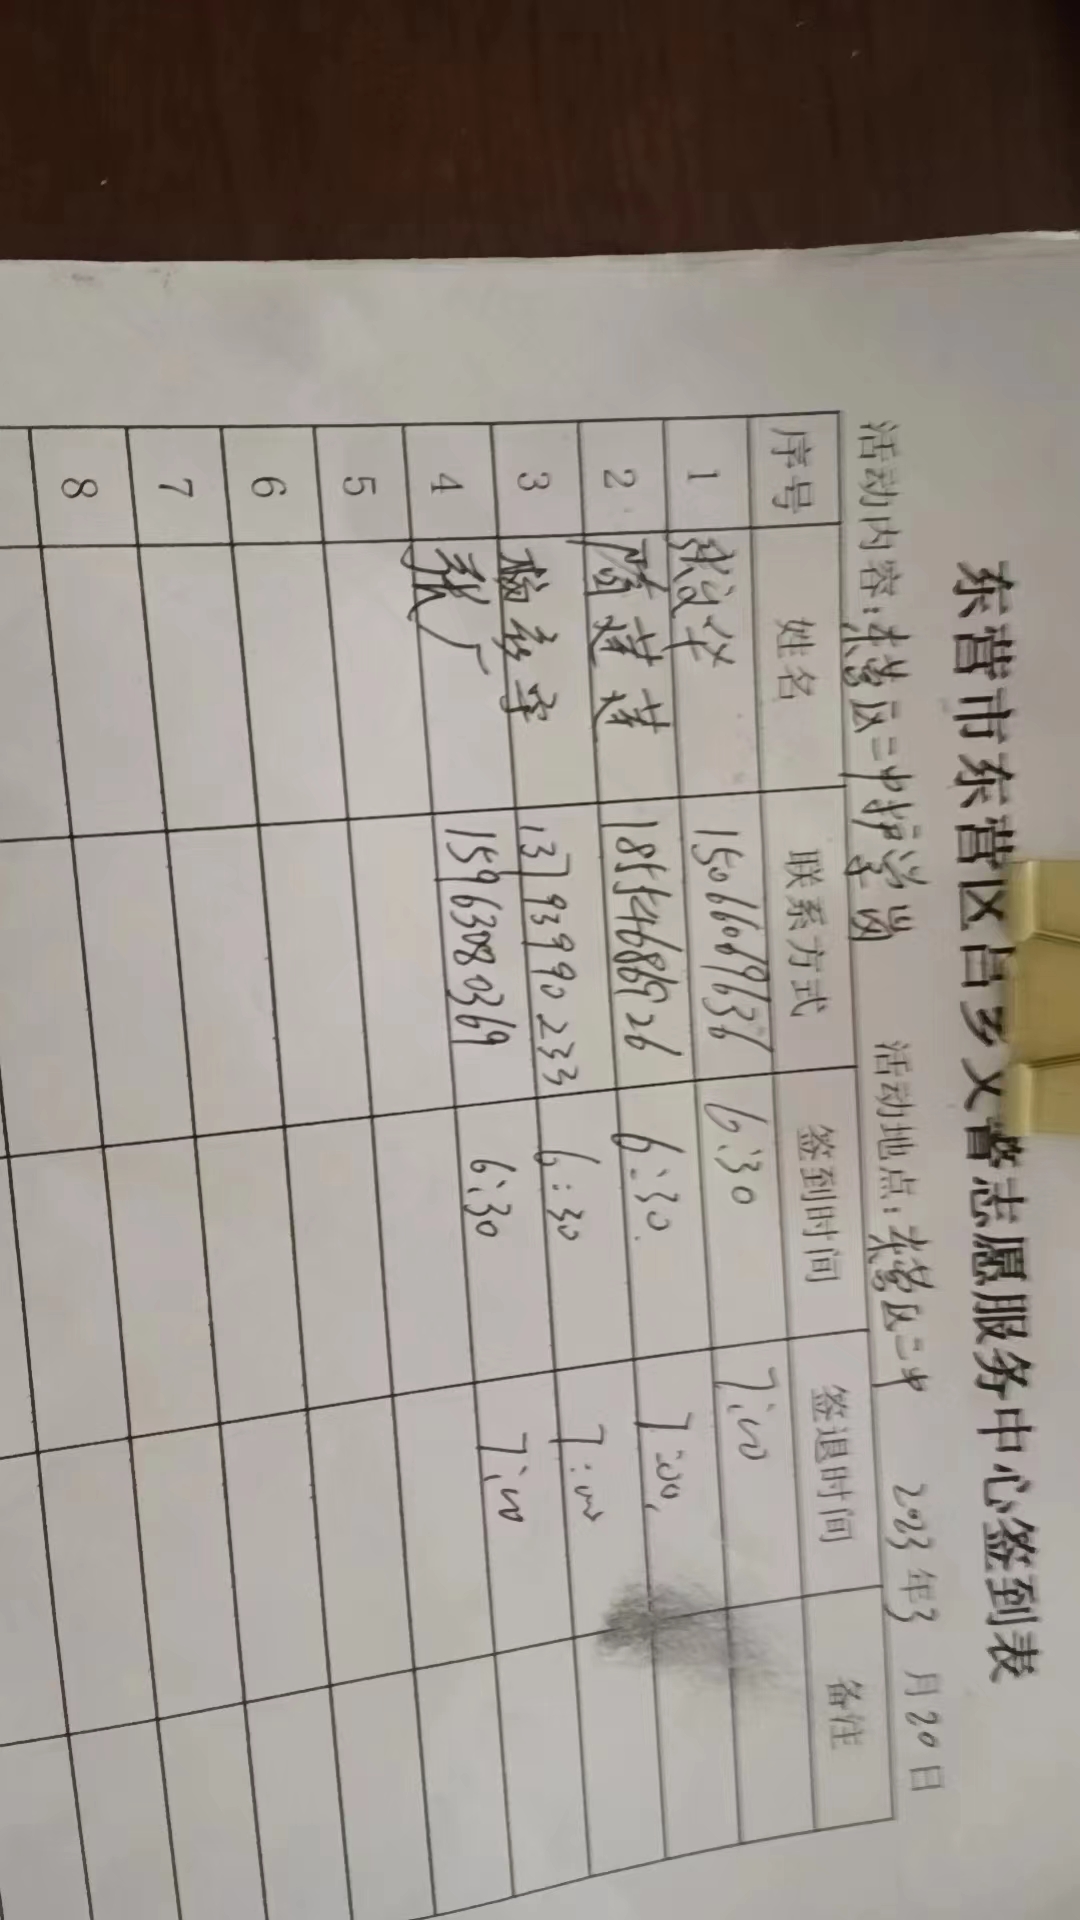 东营市东营区吕乡义警志愿服务中心签到表
活动内容：东营区二中护学岗 活动地点：东营区二中 2023年3月20日
序号 姓名 联系方式 签到时间 签退时间 备注
1 15066069636 6:30 7:00
2 陈莲莲 18554686926 6:30 7:00
3 13793990233 6:30 7:00
4 张广 15963080369 6:30 7:00
5
6
7
8